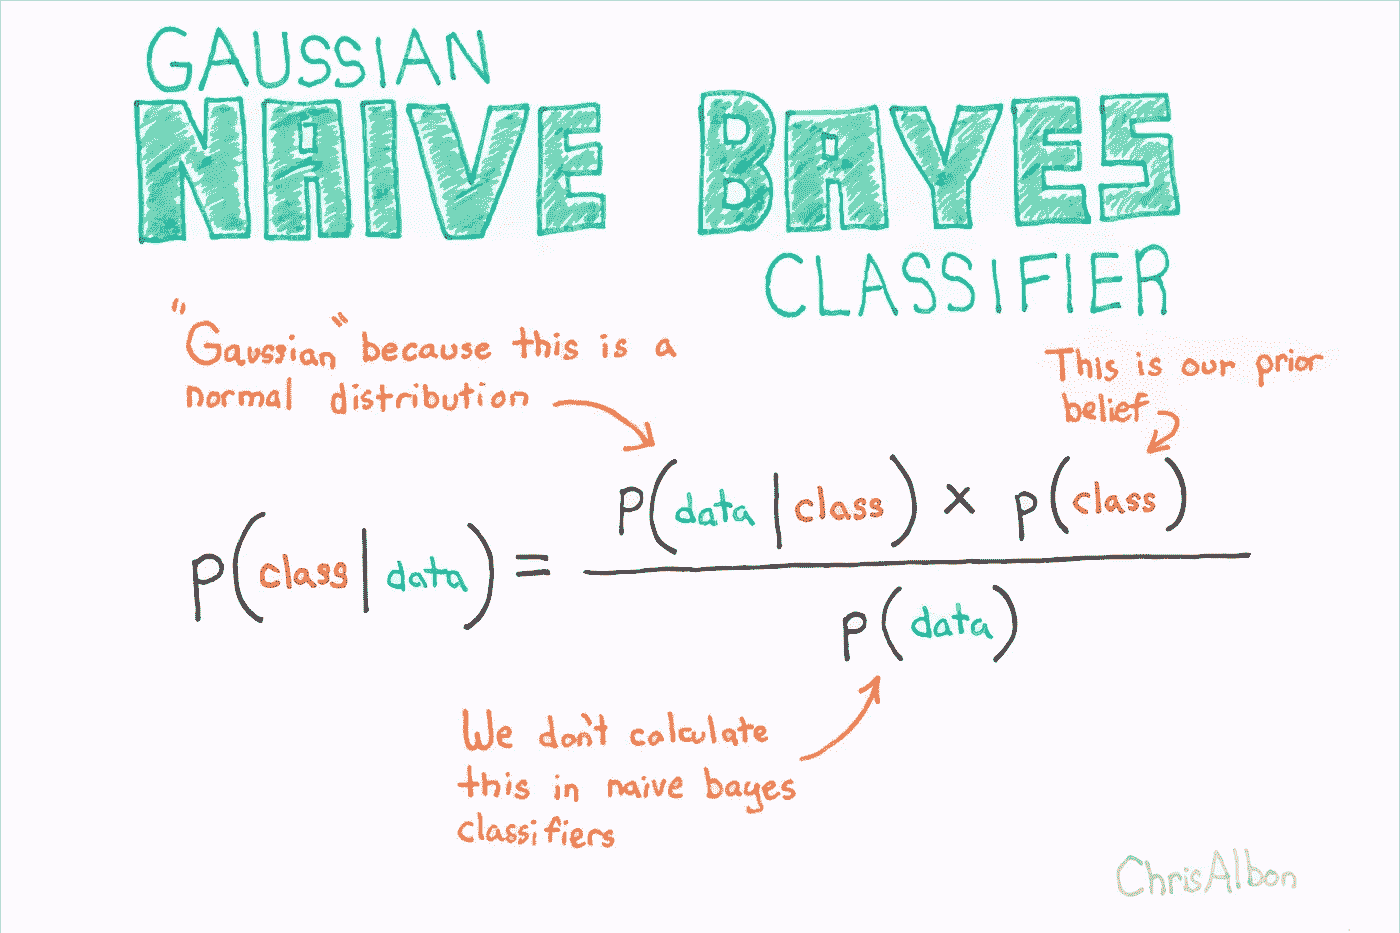 GAUSSIAN
NAIVE BAYES
CLASSIFIER
"Gaussian" because this is a
normal distribution
This is our prior
belief
P(data|class) × P(class)
P(class|data) =
P(data)
We don't calculate
this in naive bayes
classifiers
ChrisAlbon